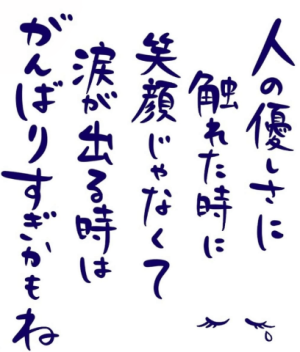 人の優しさに
触れた時に
笑顔じゃなくて
涙が出る時は
がんばりすぎかもね